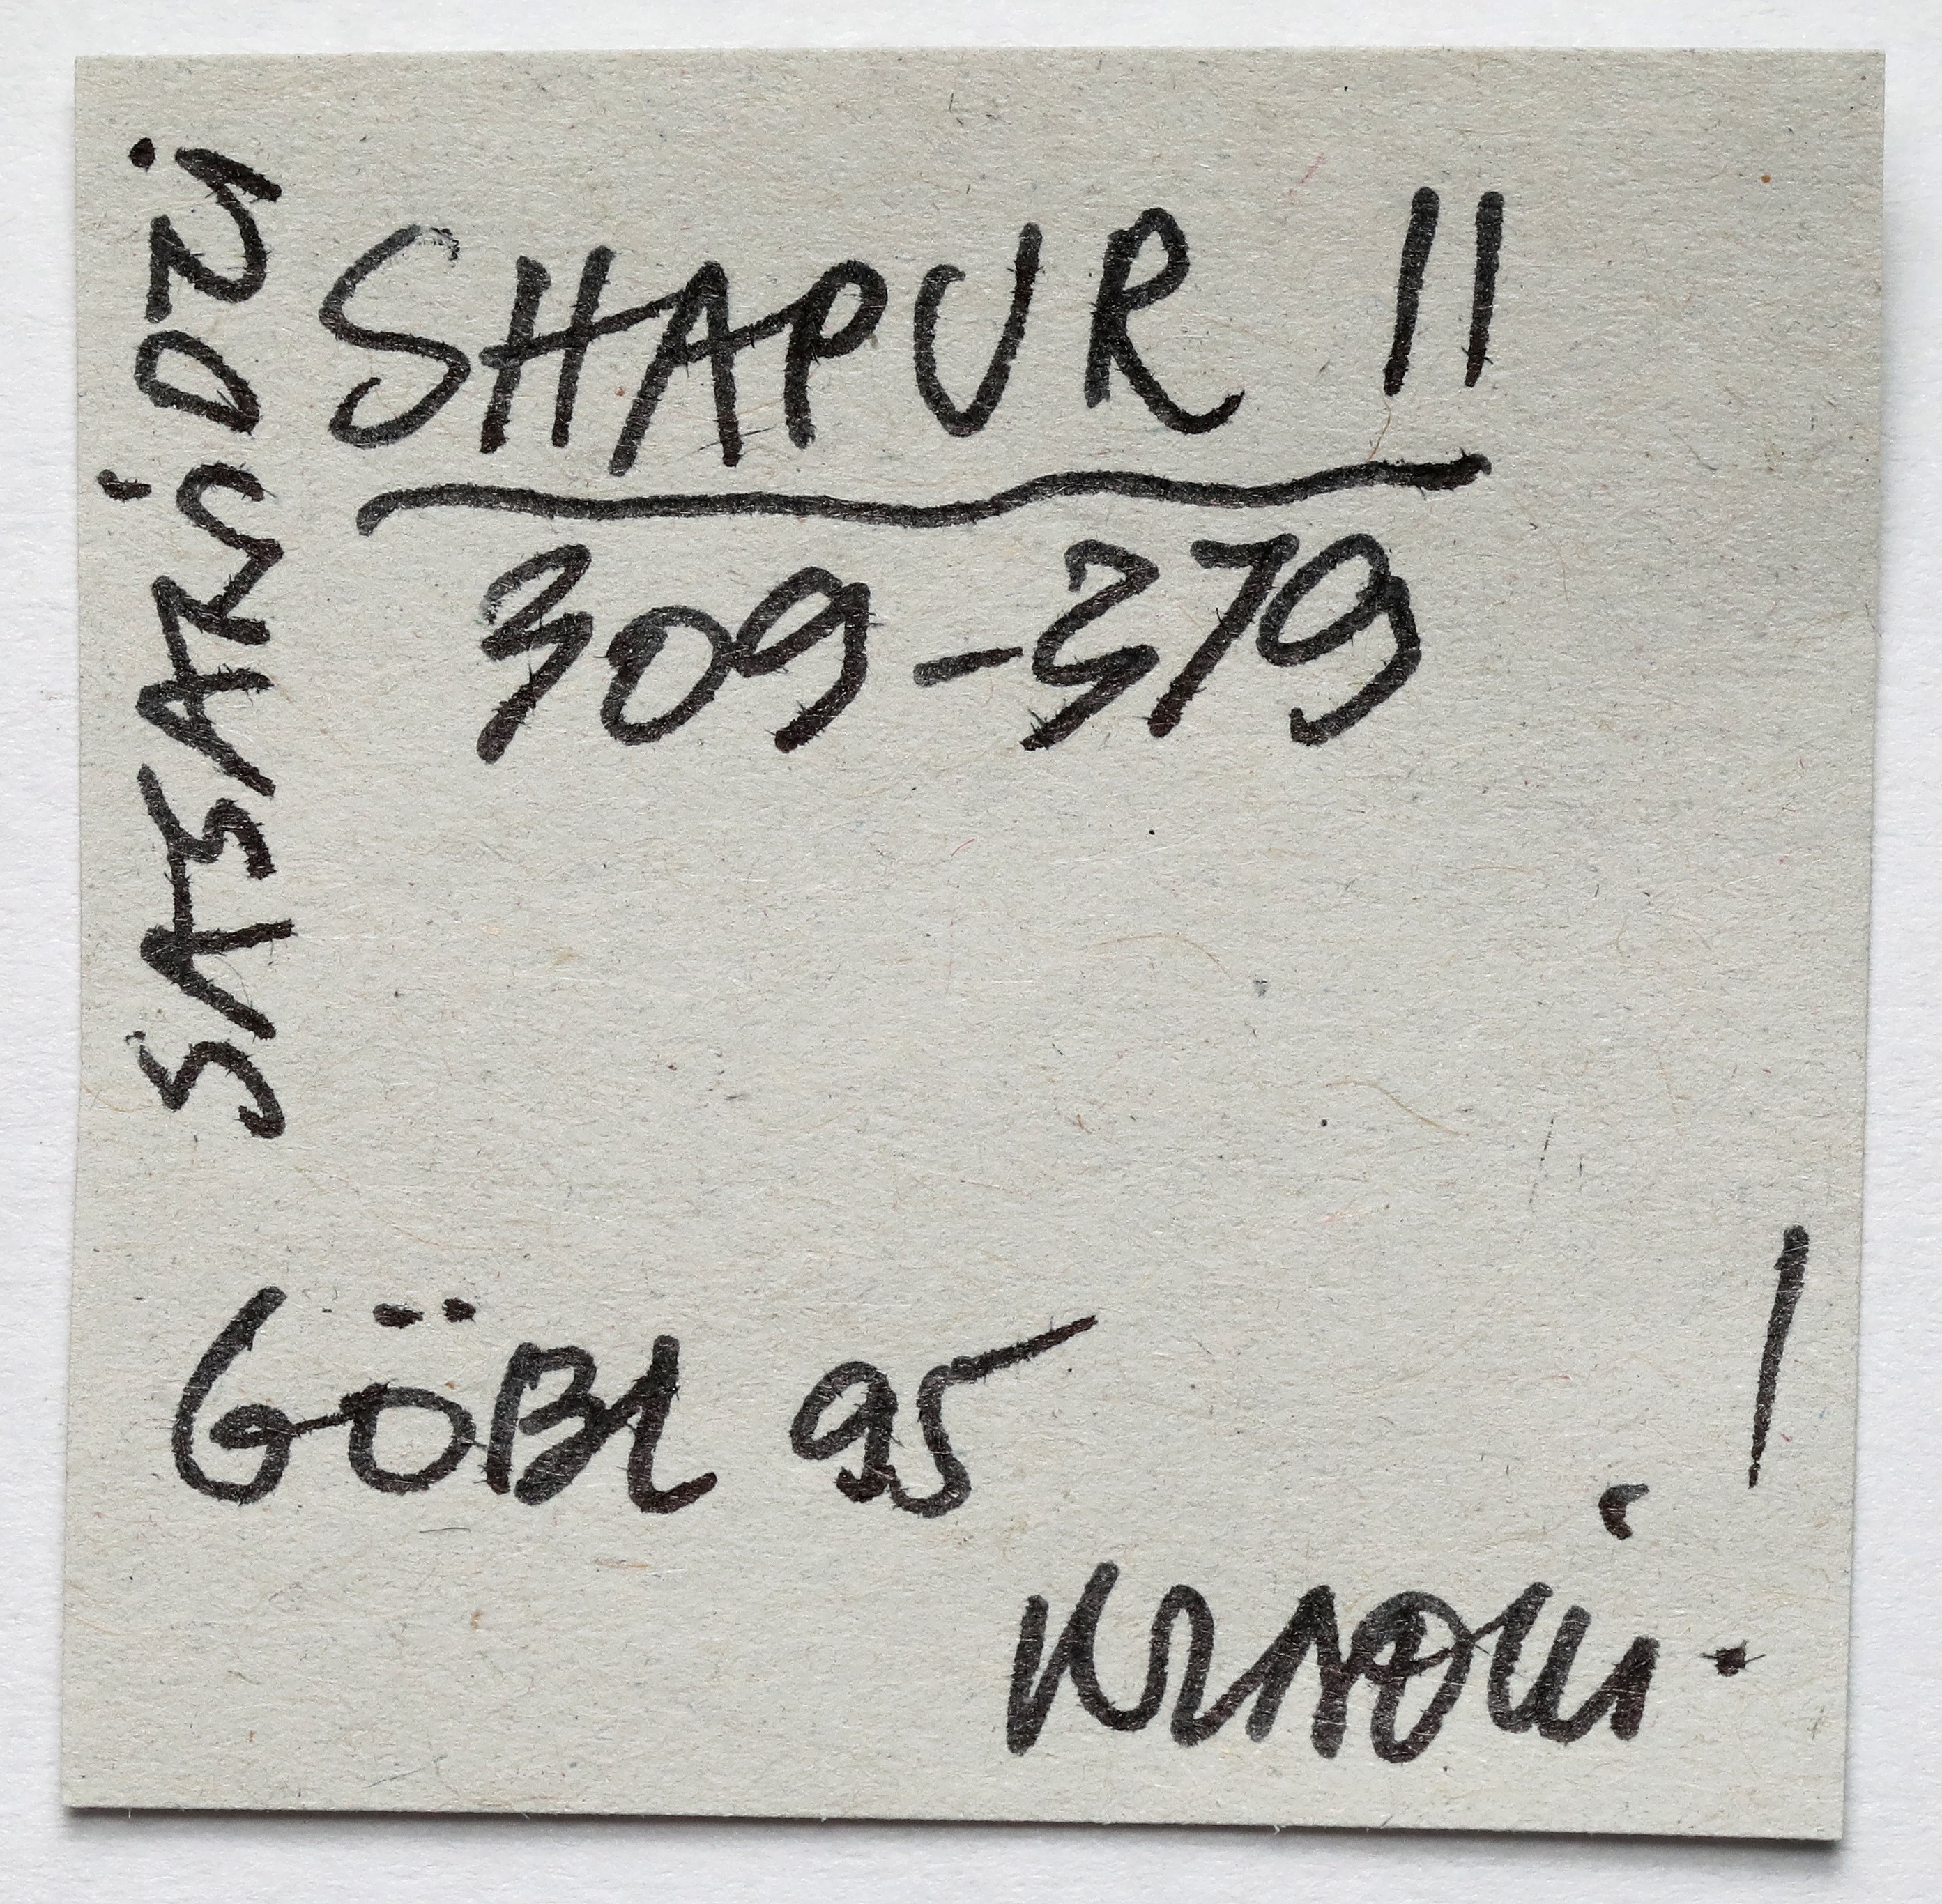 SASANiDZi
SHAPUR II
309-379
GÖBL 95